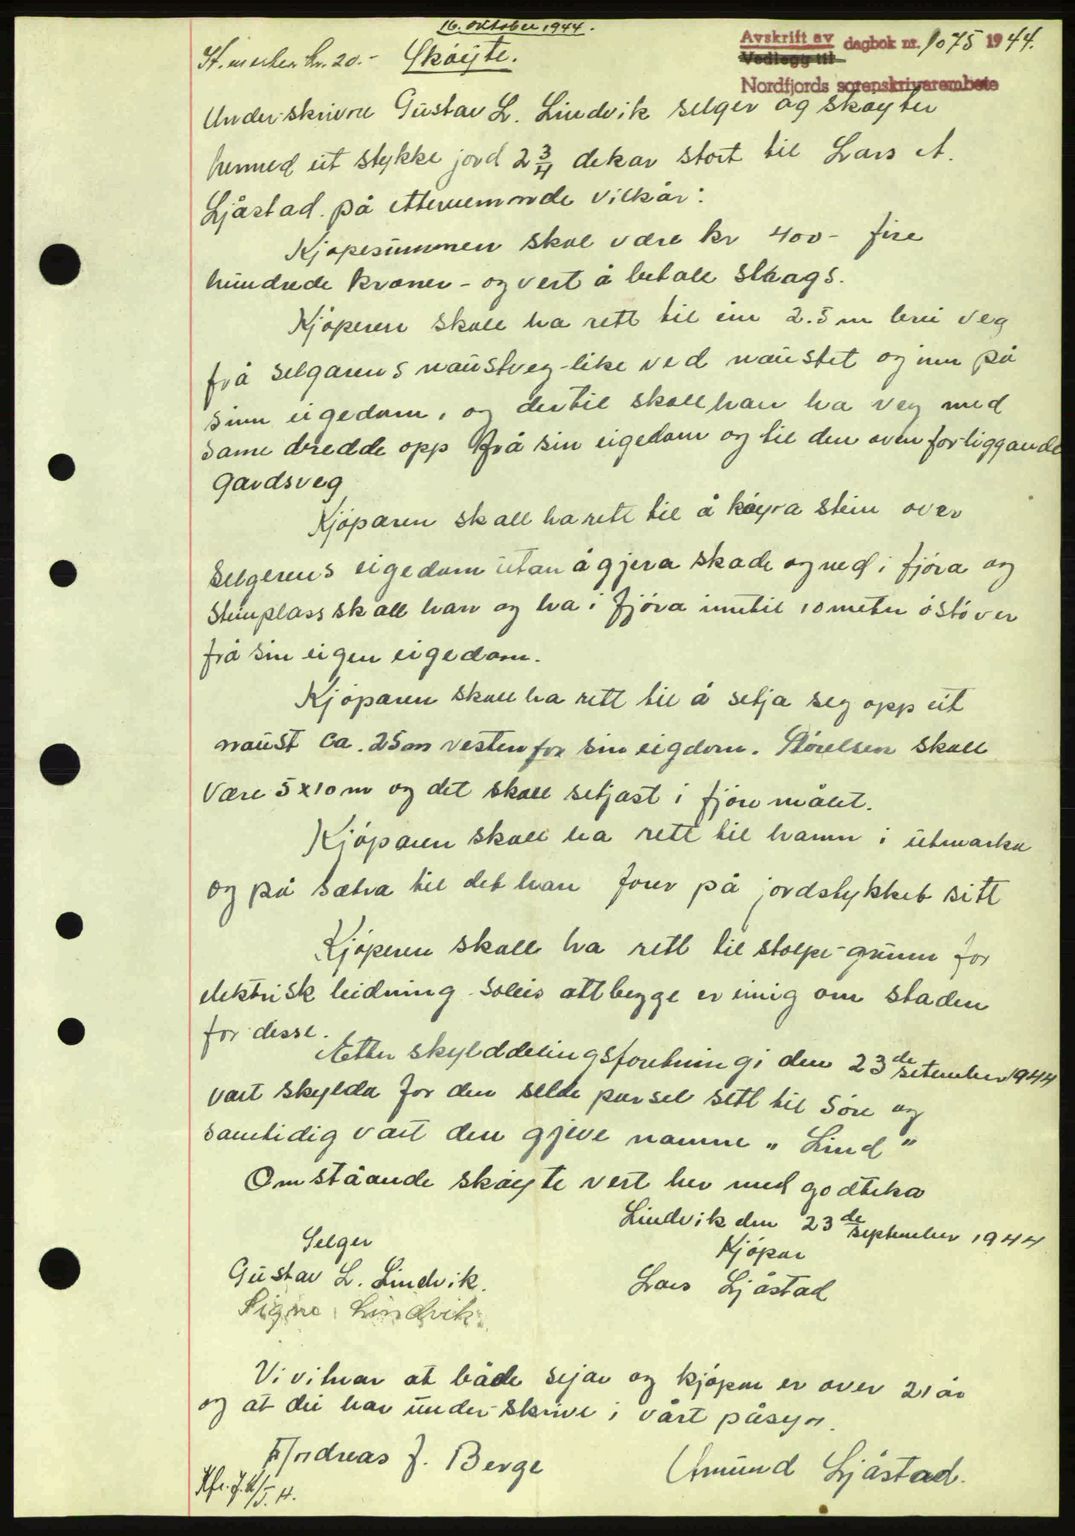 16. oktober 1944.
St.merker kr. 20.- Skøyte.
Avskrift av dagbok nr. 1075 1944.
Vedlegg til
Nordfjords sorenskrivarembete
Underskrivne Gustav L. Lindvik selger og skøyter
hermed eit stykke jord 2 3/4 dekar stort til Lars A.
Ljåstad på etternemnde vilkår:
Kjøpesummen skal være kr 400- fire
hundrede kroner - og vert å betale straags.
Kjøperen skall ha rett til ein 2.5 m brei veg
frå selgarens naustveg like ved naustet og inn på
sinn eigedom, og dertil skall han ha veg med
same bredde opp frå sin eigedom og til den ovenforliggande
gardsveg
Kjøparen skall ha rett til å køyra stein over
Selgerens eigedom utan å gjera skade og ned i fjøra og
steinplass skall han og ha i fjøra inntil 10 meter østover
frå sin eigen eigedom.
Kjøparen skall ha rett til å setja seg opp eit
naust ca. 25 m vestenfor sin eigdom. Størelsen skall
være 5x10 m og det skall setjast i fjøremålet.
Kjøparen skall ha rett til hamn i utmarka
og på sætra til det han forer på jordstykket sitt
Kjøperen skall ha rett til stolpe-grunn for
elektrisk leidning soleis att begge er einig om staden
for desse.
Etter skylddelingsforetning i den 23de setember 1944
vart skylda for den selde parsel sett til 5 øre og
samtidig vart den gjeve namne "Lind"
Omståande skøyte vert her med godteke
Lindvik den 23de september 1944
Selger Kjøpar
Gustav L. Lindvik. Lars Ljåstad
Signe Lindvik
Vi vitnar at både sejar og kjøpar er over 21 år
og at dei har underskrive i vårt påsyn.
Andreas J. Berge Amund Ljåstad.